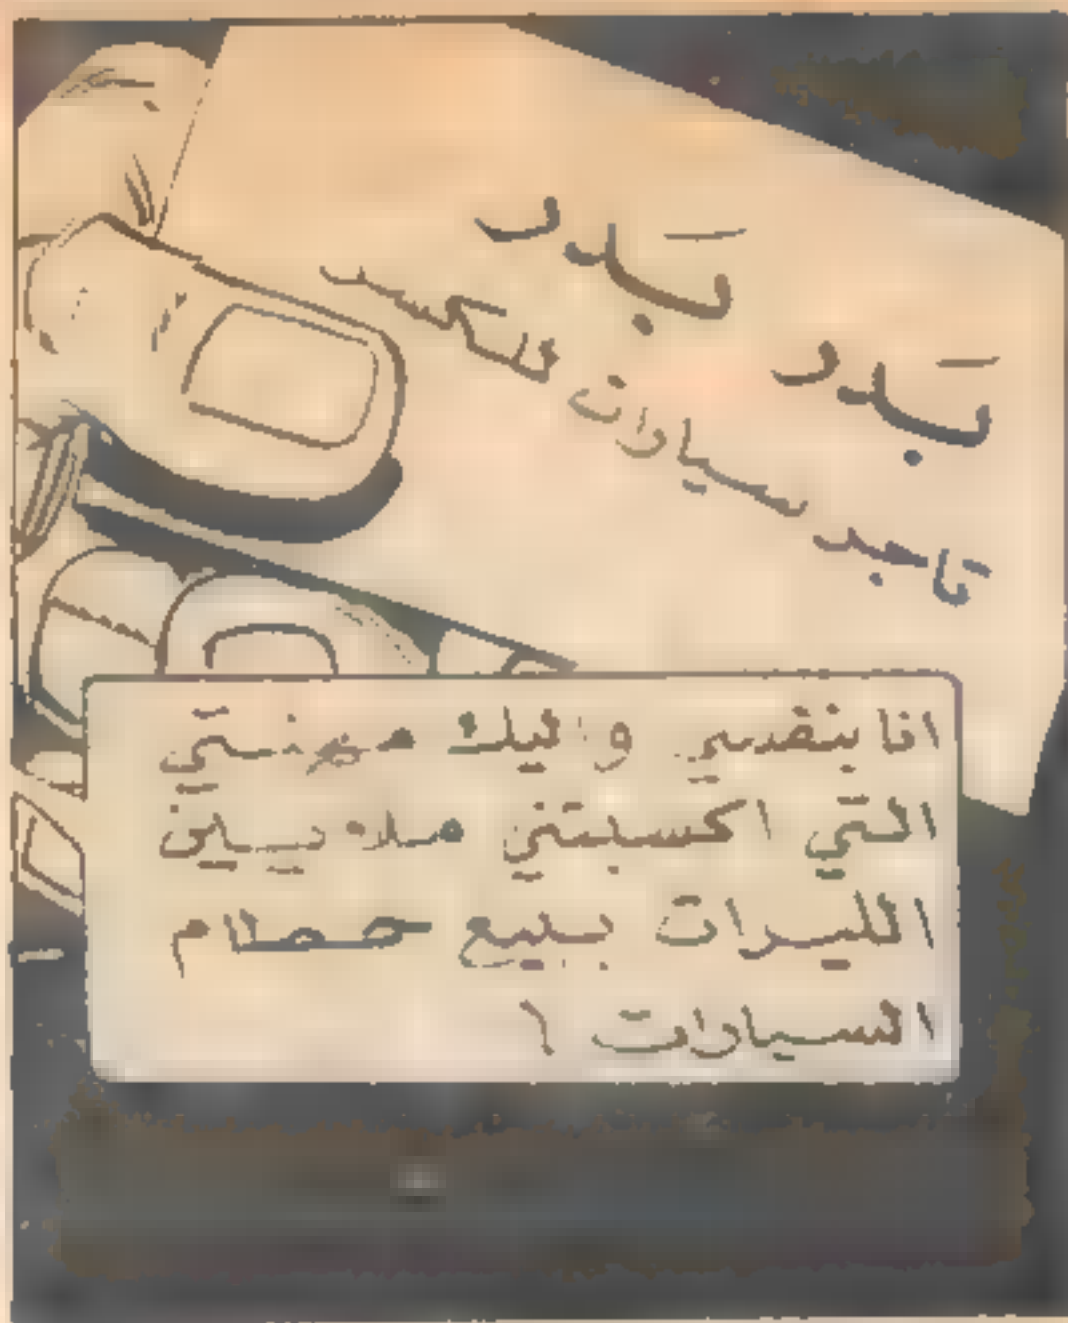 بَدر بَدر
تاجر سيارات للكسر
انا بنفسي و اليك مهنتي
التي اكسبتني ملايين
الليرات ببيع حطام
السيارات !